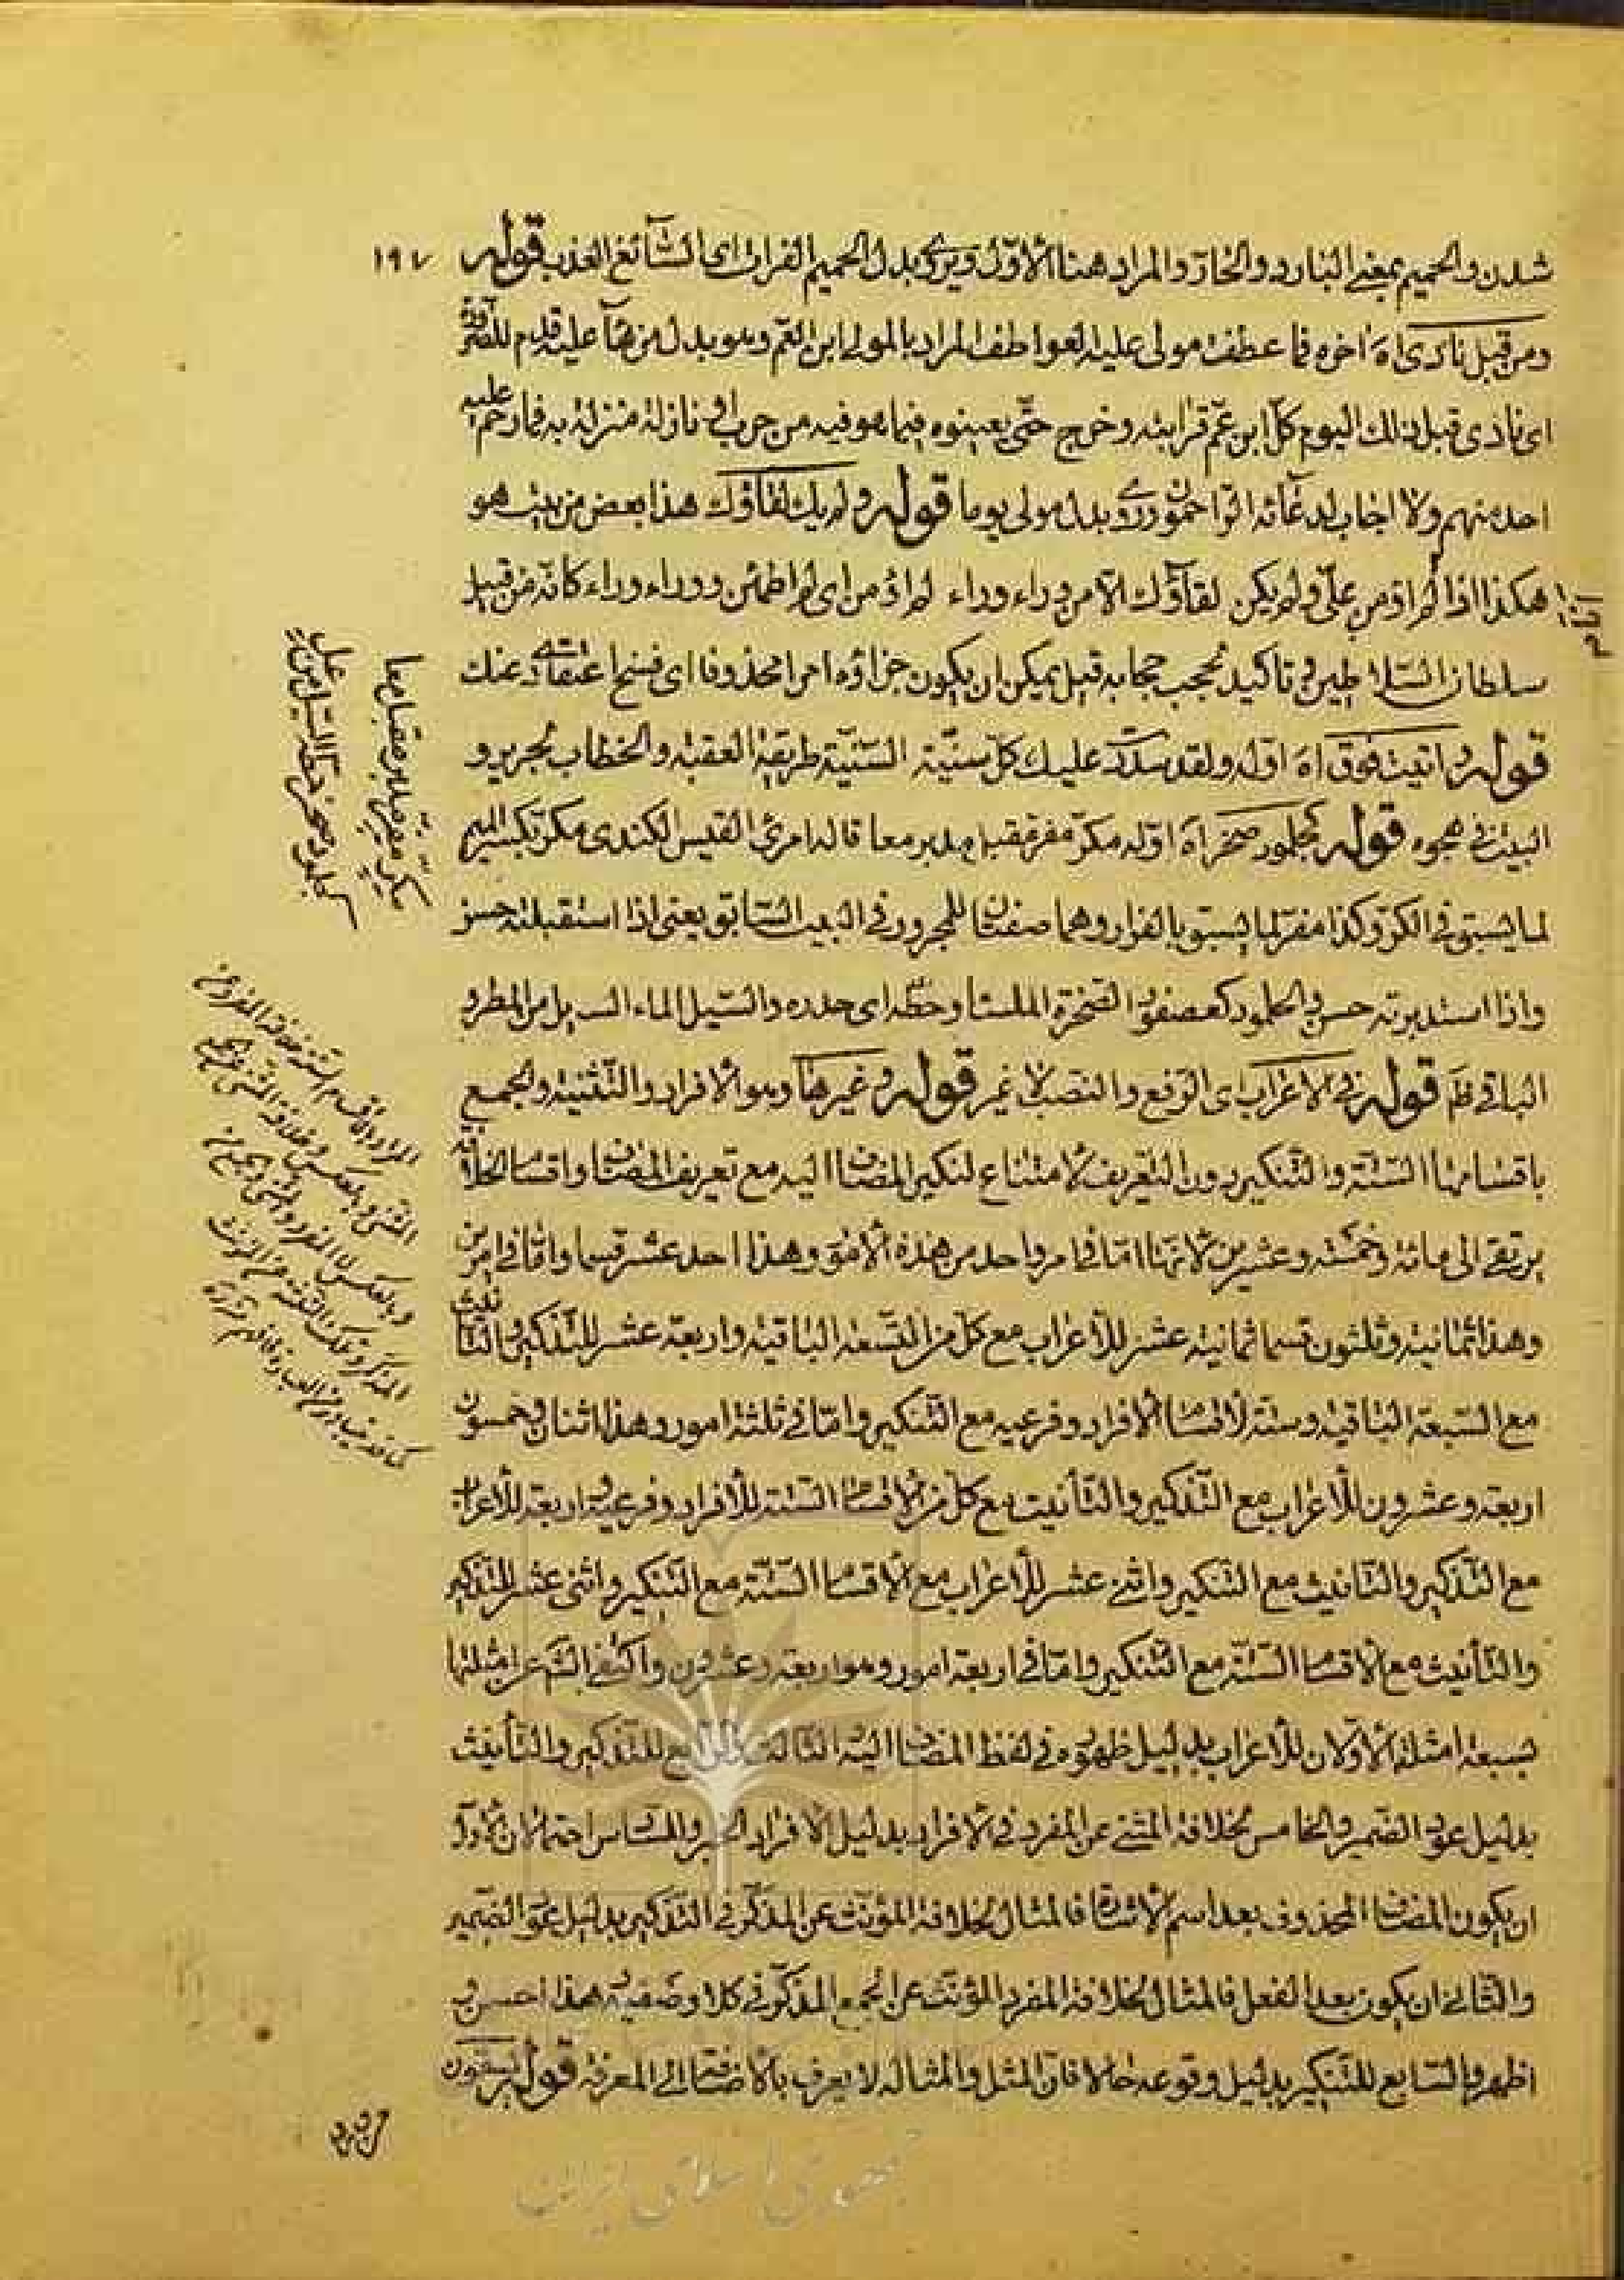 ١٩٧
شدن والحميم بمعنى البارد والحار والمراد هنا الأول ويروى بدل الحميم الفرات اى السائغ العذب قوله
ومن قبل نادى اه اخره فما عطفت مولى عليه العواطف المراد بالمولى ابن العم وهو بدل من هآء عليه قدم للضرورة
اى نادى قبل ذلك اليوم كل ابن عم قرابته وخرج حتى يعينوه فيما هو فيه من حرب او نازلة منزلة به فما رحم عليه
احد منهم ولا اجاب لدعائه اتوا حمون وروى بدل مولى يوما قوله ولم يك لقاؤك هذا بعض من بيت هو
هكذا اذا انا لم اومن على ولم يكن لقآؤك الا من وراء وراء لم اومن اى لم اطمئن ووراء وراء كانه من قبيل
سلطان السلاطين فى تاكيد تحجب حجابه قيل يمكن ان يكون جزاؤه امرا محذوفا اى فسخ اعتقادى عنك
قوله واتيت فوق اه اوله ولقد سددت عليك كل سنية السنية طريقة العقبة والخطاب لجرير و
البيت فى هجوه قوله كجلمود صخر اه اوله مكر مفر مقبل مدبر معا قاله امرئ القيس الكندى مكر بكسر الميم
لما يسبق فى الكر وكذا مفر لما يسبق بالفرار وهما صفتان للمجرور فى البيت السابق يعنى اذا استقبلته حسن
واذا استدبرته حسن والجلمود كعصفور الصخرة الملسا وحطه اى حدره والسيل الماء السيل من المطر و
الباقى ظ قوله فى الاعراب اى الرفع والنصب لا غير قوله وغيرها وهو الافراد والتثنية والجمع
باقسامها الستة والتنكير دون التعريف لامتناع تنكير المضاف اليه مع تعريف المضاف واقسام الخلافة
يرتقى الى مائة وخمسة وعشرين لانها اما فى امر واحد من هذه الامور وهذا احد عشر قسما واما فى امرين
وهذا ثمانية وثلثون قسما ثمانية عشر للاعراب مع كل من التسعة الباقية واربعة عشر للتذكير والتانيث
مع السبعة الباقية وستة لاقسام الافراد وفرعيه مع التنكير واما فى ثلثة امور وهذا اثنان وخمسون
اربعة وعشرون للاعراب مع التذكير والتأنيث مع كل من الاقسام الستة للافراد وفرعيه واربعة للاعراب
مع التذكير والتانيث مع التنكير واثنى عشر للاعراب مع الاقسام الستة مع التنكير واثنى عشر للتذكير
والتأنيث مع الاقسام الستة مع التنكير واما فى اربعة امور وهو اربعة وعشرون واكتفى الش عن امثلتها
بسبعة امثلة الاولان للاعراب بدليل ظهوره فى لفظ المضاف اليه الثالث والرابع للتذكير والتأنيث
بدليل عود الضمير والخامس لخلافة المثنى عن المفرد فى الافراد بدليل الافراد الخبر والسادس احتمالان الاول
ان يكون المضاف المحذوف بعد اسم الاشارة فالمثال لخلافة المؤنث عن المذكر فى التذكير بدليل عود الضمير
والثانى ان يكون بعد الفعل فالمثال لخلافة المفرد المؤنث عن الجمع المذكر فى كلا وصفيه هذا احسن و
اظهر والسابع للتنكير بدليل وقوعه حالا فان المثل والمثاله لا يعرف بالاضافة الى المعرفة قوله يسقون
انا لم
مكر مفر مقبل مدبر معا
كجلمود صخر حطه السيل من عل